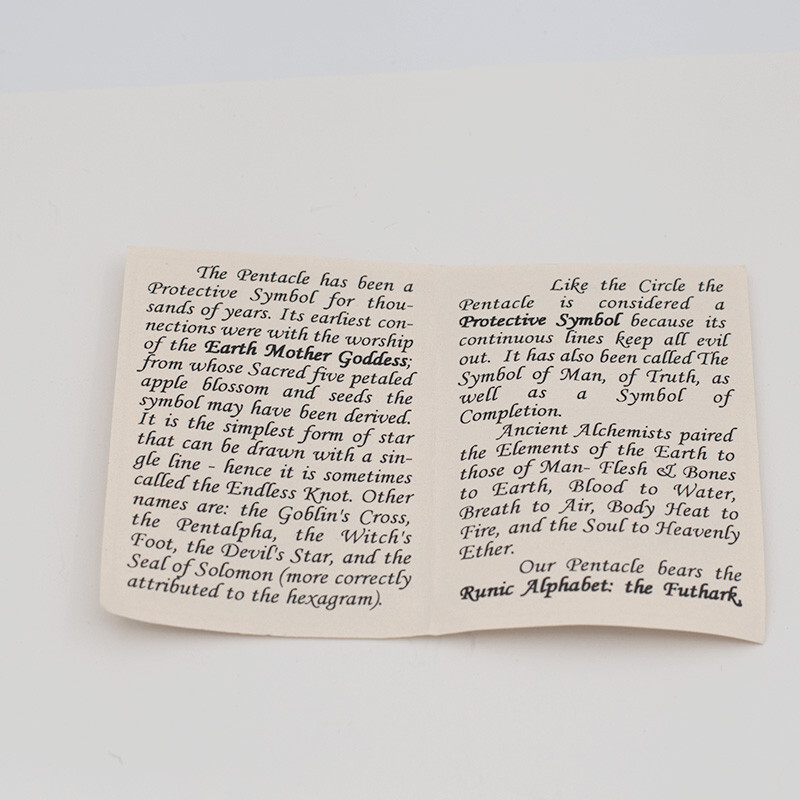 The Pentacle has been a
Protective Symbol for thou-
sands of years. Its earliest con-
nections were with the worship
of the Earth Mother Goddess;
from whose Sacred five petaled
apple blossom and seeds the
symbol may have been derived.
It is the simplest form of star
that can be drawn with a sin-
gle line - hence it is sometimes
called the Endless Knot. Other
names are: the Goblin's Cross,
the Pentalpha, the Witch's
Foot, the Devil's Star, and the
Seal of Solomon (more correctly
attributed to the hexagram).
Like the Circle the
Pentacle is considered a
Protective Symbol because its
continuous lines keep all evil
out. It has also been called The
Symbol of Man, of Truth, as
well as a Symbol of
Completion.
Ancient Alchemists paired
the Elements of the Earth to
those of Man- Flesh & Bones
to Earth, Blood to Water,
Breath to Air, Body Heat to
Fire, and the Soul to Heavenly
Ether.
Our Pentacle bears the
Runic Alphabet: the Futhark,